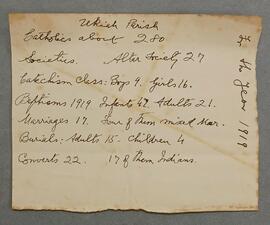 Ukiah Parish
Catholics about 200
Societies. Alter Society 27
Catechism Class: Boys 9. Girls 16.
Baptisms 1919 Infants 47. Adults 21.
Marriages 17. Four of them mixed Mar.
Burials: Adults 15 - Children 4
Converts 22. 17 of them Indians.
In the Year 1919